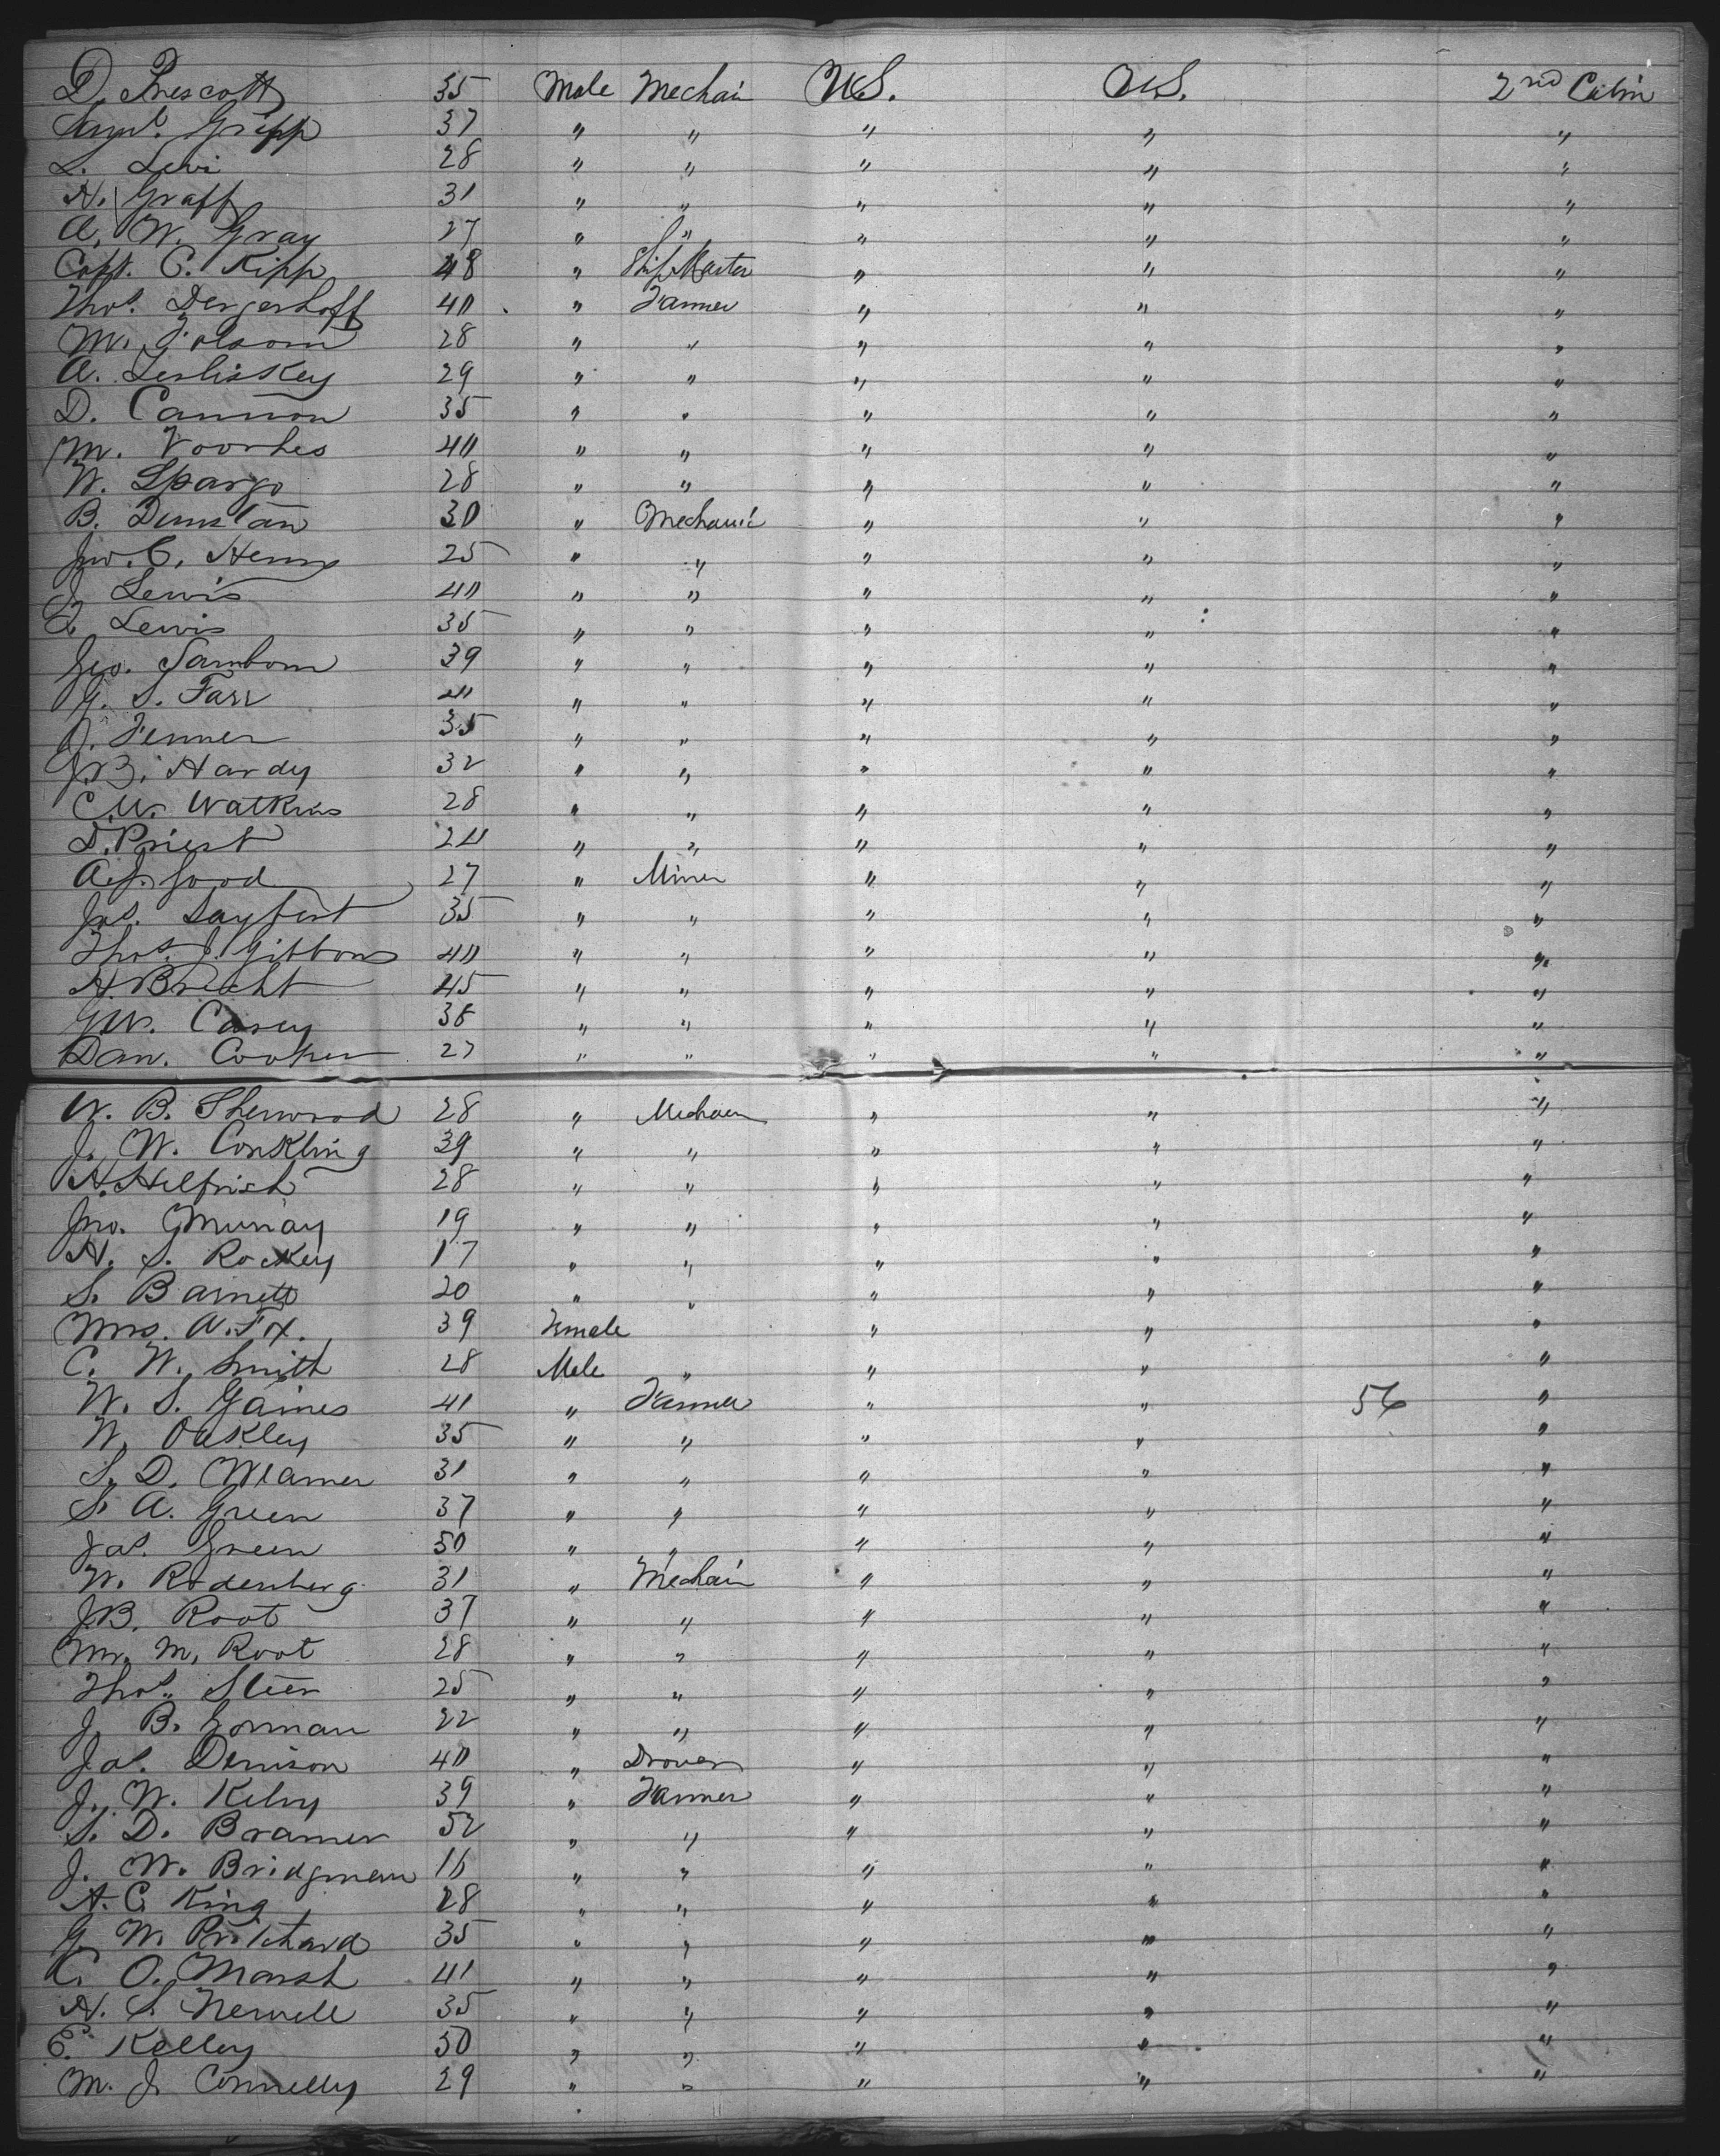 D. Prescott 35 Male Mechain U.S. U.S. 2nd Cabin
Saml. Gripp 37 " " " " "
L. Levi 28 " " " " "
H. Graff 31 " " " " "
A. W. Gray 27 " " " " "
Capt. C. Kipp 48 " Ship Master " " "
Thos. Dergerhoff 40 " Farmer " " "
M. Folsom 28 " " " " "
A. Lesliskey 29 " " " " "
D. Cannon 35 " " " " "
M. Voorhes 40 " " " " "
W. Spargo 28 " " " " "
B. Dunstan 30 " Mechanic " " "
Jno. C. Henry 25 " " " " "
J. Lewis 40 " " " " "
Lewis 35 " " " " "
Geo. Sanborn 39 " " " " "
G. S. Farr " " " " "
Fenner 35 " " " " "
J.B. Hardy 32 " " " " "
C.W. Watkins 28 " " " " "
D. Priest 24 " " " " "
A.J. Good 27 " Miner " " "
Jas. Sayfert 35 " " " " "
Thos. J. Gibbons 40 " " " " "
H. Brecht 45 " " " " "
G.W. Casey 38 " " " " "
Dan. Cooper 27 " " " " "
W. B. Sherwood 28 " Mechain " " "
J. W. Conkling 39 " " " " "
H. Helfrich 28 " " " " "
Jno. Murray 19 " " " " "
H. S. Rockey 17 " " " " "
S. Barnett 20 " " " " "
Mrs. A. Fox. 39 Female " " "
C. W. Smith 28 Male " " " "
W. S. Gaines 41 " Farmer " " 56 "
W. Oakley 35 " " " " "
S. D. Warner 31 " " " " "
S. A. Green 37 " " " " "
Jas. Green 50 " " " " "
W. Rodenberg 31 " Mechain " " "
J.B. Root 37 " " " " "
M. Root 28 " " " " "
Thos. Steen 25 " " " " "
J. B. Gorman 22 " " " " "
Jas. Denison 40 " Drover " " "
J. W. Kelny 39 " Farmer " " "
S. D. Bramer 52 " " " " "
J. W. Bridgman 16 " " " " "
A. C. King 28 " " " " "
G. W. Pritchard 35 " " " " "
C. O. Marsh 41 " " " " "
H. S. Newell 35 " " " " "
E. Kelley 50 " " " " "
M. J. Connelly 29 " " " " "